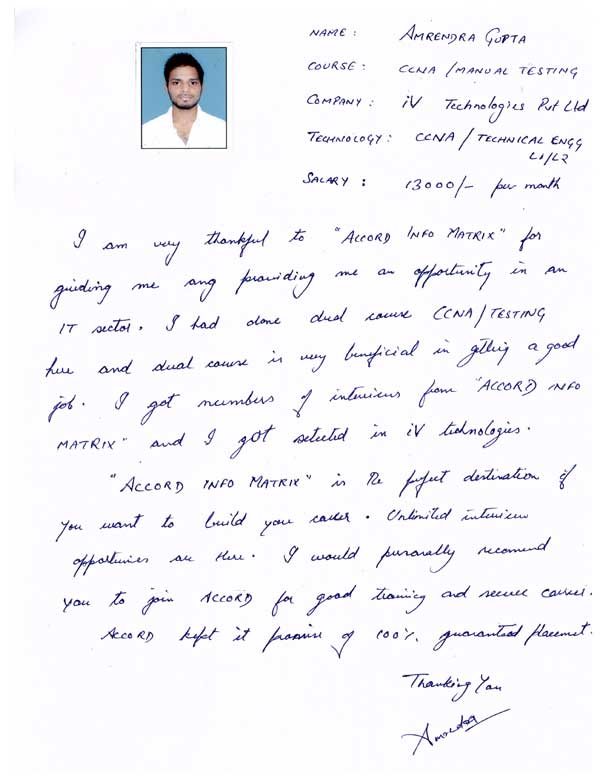 NAME : AMRENDRA GUPTA
COURSE : CCNA / MANUAL TESTING
COMPANY : iV Technologies Pvt Ltd
TECHNOLOGY : CCNA / TECHNICAL ENGG
L1/L2
SALARY : 13000/- per month
I am very thankful to "ACCORD INFO MATRIX" for
guiding me ang providing me an opportunity in an
IT sector. I had done dual course CCNA/TESTING
here and dual course is very beneficial in getting a good
job. I got numbers of interviews from "ACCORD INFO
MATRIX" and I got selected in iV technologies.
"ACCORD INFO MATRIX" is the perfect destination if
you want to build your career. Unlimited interview
opportunies are Here. I would personally recomend
you to join ACCORD for good training and secure career.
ACCORD kept it promise of 100% guaranteed placement.
Thanking You